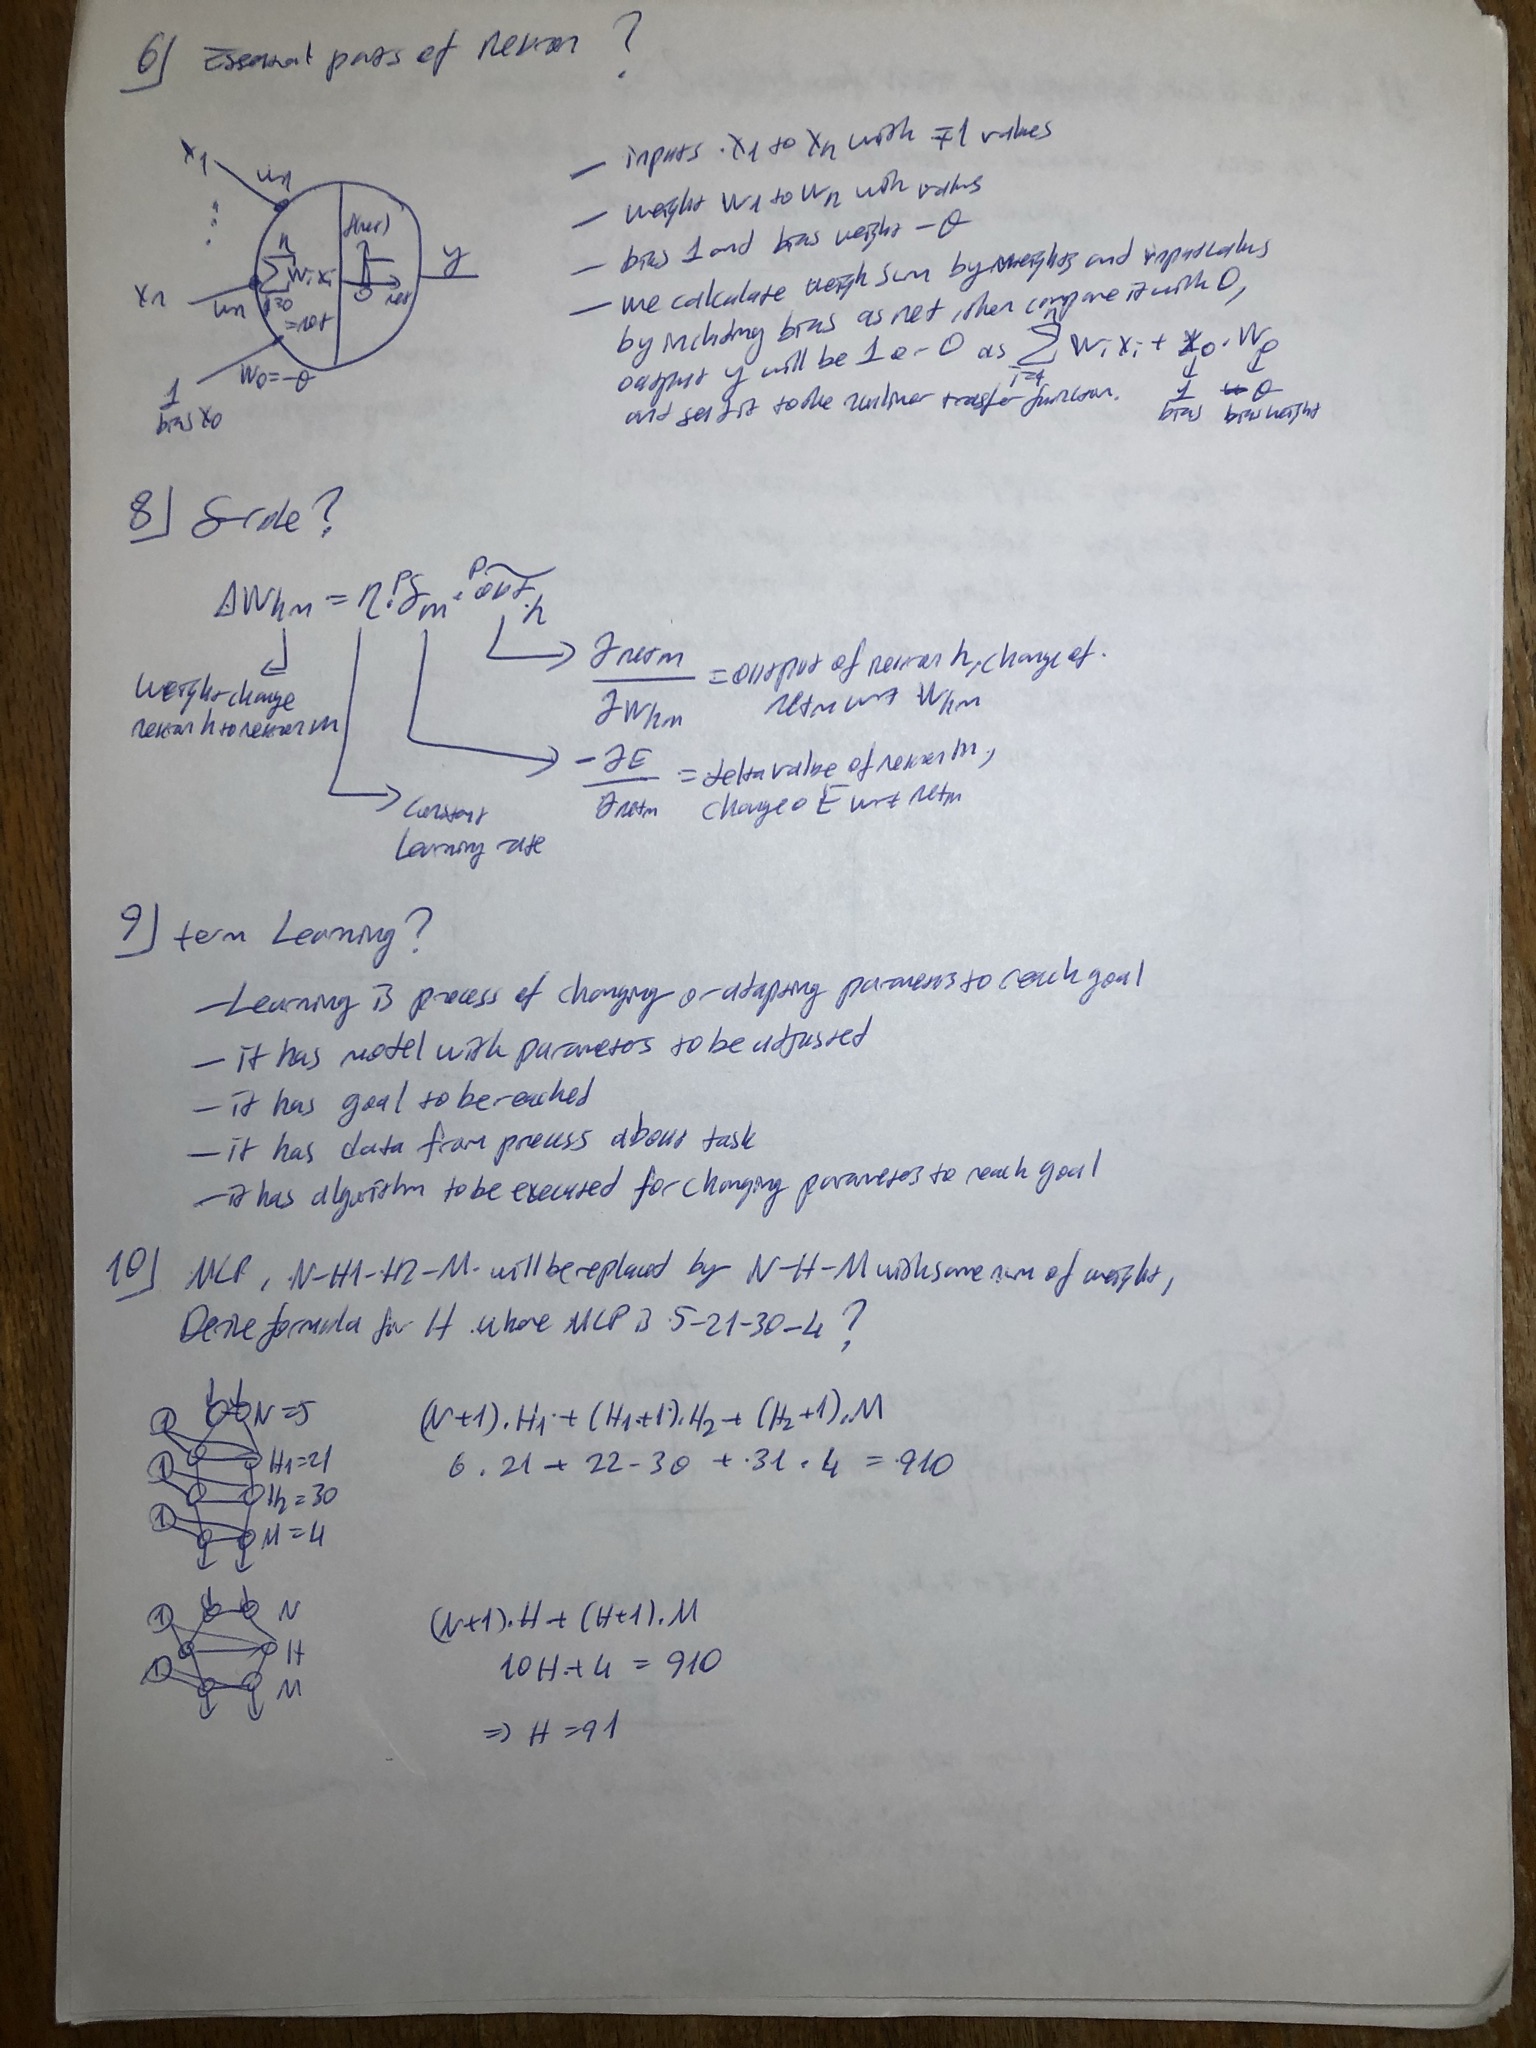 6] Essential parts of Neuron ?
x1
w1
f(net)
n
∑ wi xi
i=0
= net
0 net
y
xn
wn
w0=-θ
1
bias x0
- inputs x1 to xn with ∓1 values
- weight w1 to wn with values
- bias 1 and bias weight -θ
- we calculate weigh sum by weights and input values
by including bias as net, then compare it with 0,
output y will be 1 or 0 as n∑i=1 wi xi + x0 · w0
and send it to the nonlinear transfer function.
1 -θ
bias bias weight
8] δ-rule?
ΔWhm = η · Pδm · P~outh
weight change
neuron h to neuron m
∂netm / ∂Whm = output of neuron h, change of
netm wrt Whm
-∂E / ∂netm = delta value of neuron m,
change of E wrt netm
Constant
Learning rate
9] term Learning?
- Learning is process of changing or adapting parameters to reach goal
- it has model with parameters to be adjusted
- it has goal to be reached
- it has data from process about task
- it has algorithm to be executed for changing parameters to reach goal
10] MLP, N-H1-H2-M will be replaced by N-H-M with same num of weight,
Derive formula for H where MLP is 5-21-30-4?
1 N=5
1 H1=21
H2=30
1 M=4
(N+1).H1 + (H1+1).H2 + (H2+1).M
6 . 21 + 22 - 30 + 31 . 4 = 910
1 N
H
1 M
(N+1).H + (H+1).M
10H + 4 = 910
=> H = 91